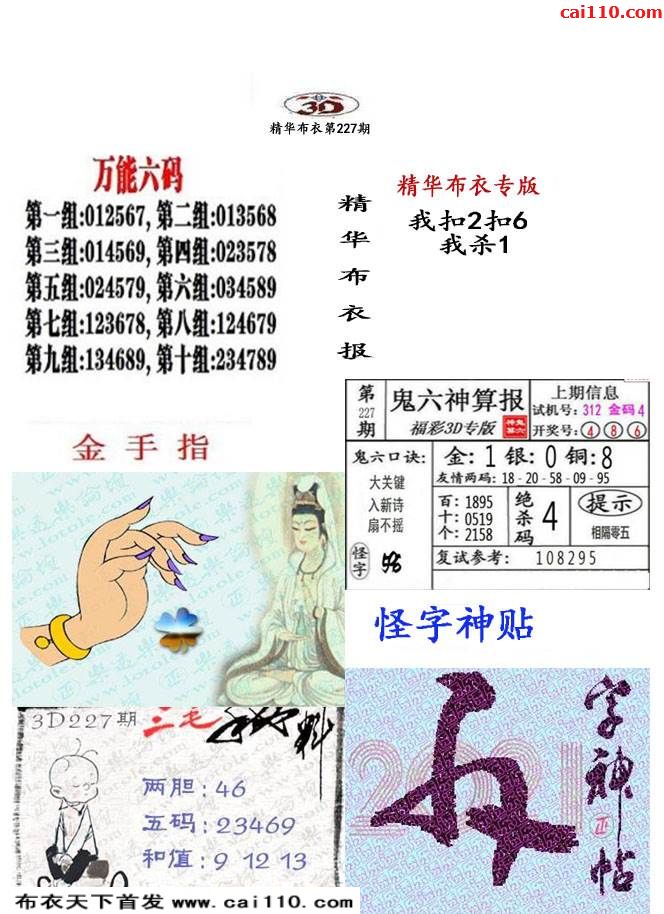 cai110.com
3D
精华布衣第227期
万能六码
第一组:012567, 第二组:013568
第三组:014569, 第四组:023578
第五组:024579, 第六组:034589
第七组:123678, 第八组:124679
第九组:134689, 第十组:234789
精华布衣报
精华布衣专版
我扣2扣6
我杀1
金手指
第227期
鬼六神算报
福彩3D专版
上期信息
试机号: 312 金码 4
开奖号: 4 8 6
鬼六口诀:
大关键
入新诗
扇不摇
怪字
金: 1 银: 0 铜: 8
友情两码: 18-20-58-09-95
百: 1895
十: 0519
个: 2158
绝杀码 4
提示
相隔零五
复试参考: 108295
怪字神贴
3D227期 三毛
料
两胆: 46
五码: 23469
和值: 9 12 13
字神帖
2021
布衣天下首发 www.cai110.com